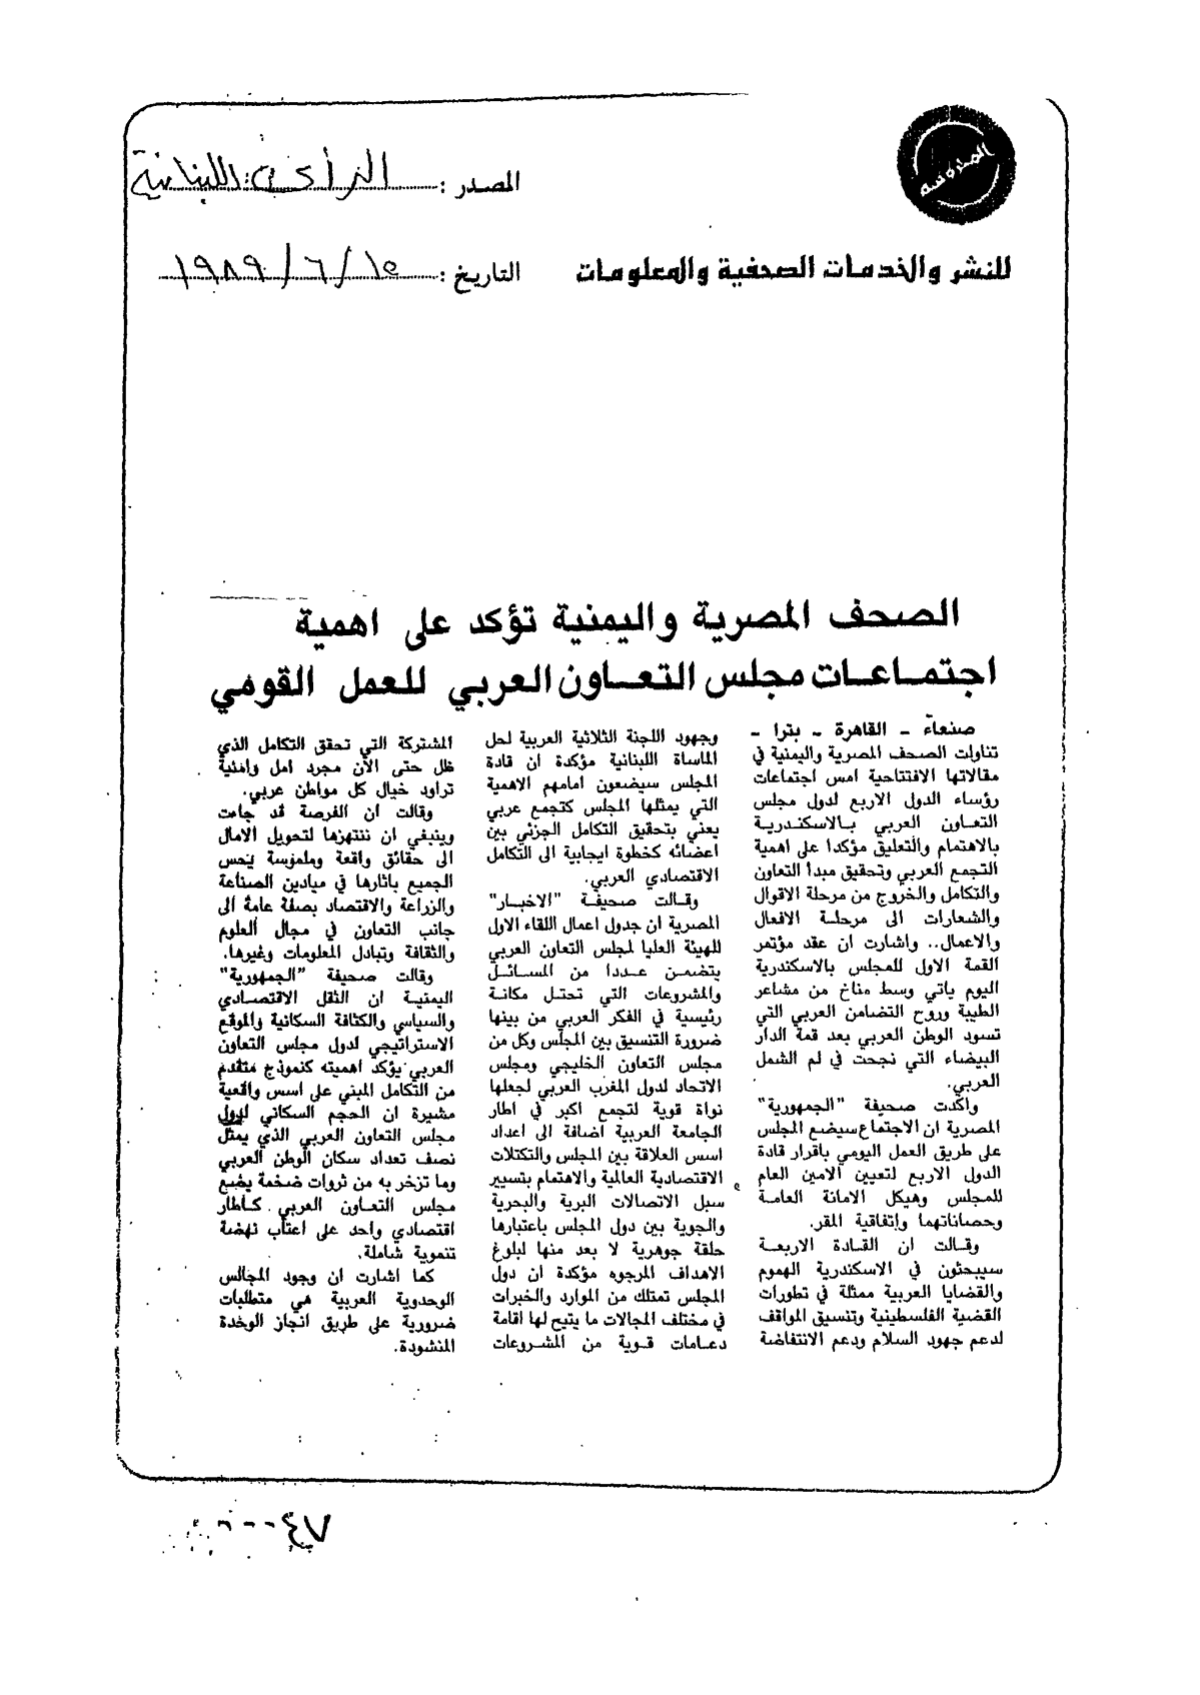 المحروسة
المصدر : الرأي اللبنانية
للنشر والخدمات الصحفية والمعلومات
التاريخ : ١٥ / ٦ / ١٩٨٩
الصحف المصرية واليمنية تؤكد على اهمية
اجتمـاعـات مجلس التعـاون العربي للعمل القومي
صنعاء - القاهرة - بترا -
تناولت الصحف المصرية واليمنية في
مقالاتها الافتتاحية امس اجتماعات
رؤساء الدول الاربع لدول مجلس
التعـاون العربي بـالاسكنـدريـة
بالاهتمام والتعليق مؤكدا على اهمية
التجمع العربي وتحقيق مبدأ التعاون
والتكامل والخروج من مرحلة الاقوال
والشعارات الى مرحلـة الافعال
والاعمال.. واشارت ان عقد مؤتمر
القمة الاول للمجلس بالاسكندرية
اليوم ياتي وسط مناخ من مشاعر
الطيبة وروح التضامن العربي التي
تسود الوطن العربي بعد قمة الدار
البيضاء التي نجحت في لم الشمل
العربي.
واكدت صحيفة "الجمهورية"
المصرية ان الاجتماع سيضع المجلس
على طريق العمل اليومي باقرار قادة
الدول الاربع لتعيين الامين العام
للمجلس وهيكل الامانة العامـة
وحصاناتهما وإتفاقية المقر.
وقـالت ان القـادة الاربعـة
سيبحثون في الاسكندرية الهموم
والقضايا العربية ممثلة في تطورات
القضية الفلسطينية وتنسيق المواقف
لدعم جهود السلام ودعم الانتفاضة
وجهود اللجنة الثلاثية العربية لحل
الماساة اللبنانية مؤكدة ان قادة
المجلس سيضعون امامهم الاهمية
التي يمثلها المجلس كتجمع عربي
يعني بتحقيق التكامل الجزئي بين
اعضائه كخطوة ايجابية الى التكامل
الاقتصادي العربي.
وقـالت صحيفـة "الاخبـار"
المصرية ان جدول اعمال اللقاء الاول
للهيئة العليا لمجلس التعاون العربي
يتضمـن عـددا من المسـائـل
والمشروعات التي تحتـل مكانـة
رئيسية في الفكر العربي من بينها
ضرورة التنسيق بين المجلس وكل من
مجلس التعاون الخليجي ومجلس
الاتحاد لدول المغرب العربي لجعلها
نواة قوية لتجمع اكبر في اطار
الجامعة العربية اضافة الى اعداد
اسس العلاقة بين المجلس والتكتلات
الاقتصادية العالمية والاهتمام بتسيير
سبل الاتصالات البرية والبحرية
والجوية بين دول المجلس باعتبارها
حلقة جوهرية لا بعد منها لبلوغ
الاهداف المرجوه مؤكدة ان دول
المجلس تمتلك من الموارد والخبرات
في مختلف المجالات ما يتيح لها اقامة
دعـامات قـوية من المشـروعات
المشتركة التي تحقق التكامل الذي
ظل حتى الآن مجرد امل وامنية
تراود خيال كل مواطن عربي.
وقالت ان الفرصة قد جاءت
وينبغي ان ننتهزها لتحويل الامال
الى حقائق واقعة وملموسة يحس
الجميع باثارها في ميادين الصناعة
والزراعة والاقتصاد بصفة عامة الى
جانب التعاون في مجال العلوم
والثقافة وتبادل المعلومات وغيرها.
وقالت صحيفة "الجمهورية"
اليمنيـة ان الثقل الاقتصـادي
والسياسي والكثافة السكانية والموقع
الاستراتيجي لدول مجلس التعاون
العربي يؤكد اهميته كنموذج متقدم
من التكامل المبني على اسس واقعية
مشيرة ان الحجم السكاني لدول
مجلس التعاون العربي الذي يمثل
نصف تعداد سكان الوطن العربي
وما تزخر به من ثروات ضخمة يضع
مجلس التعاون العربي كـاطار
اقتصادي واحد على اعتاب نهضة
تنموية شاملة.
كما اشارت ان وجود المجالس
الوحدوية العربية هي متطلبات
ضرورية على طريق انجاز الوحدة
المنشودة.